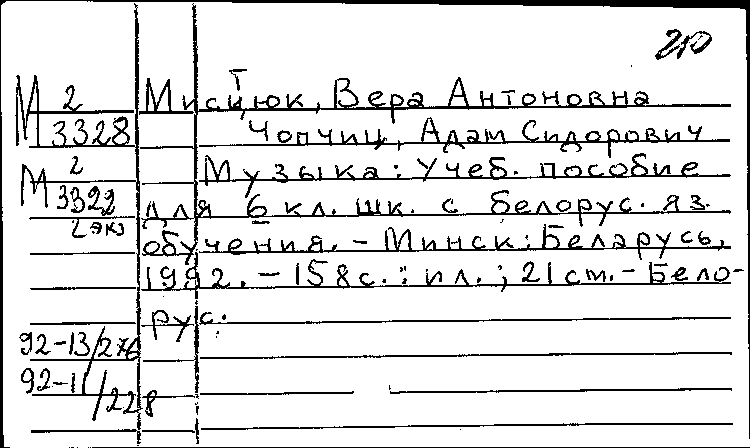 210
М 2 Мистюк, Вера Антоновна
3328 Чопчиц, Адам Сидорович
М 2 Музыка: Учеб. пособие
3322 для 6 кл. шк. с белорус. яз.
2 экз обучения. – Минск: Беларусь,
1992. – 158 с. : ил. ; 21 см. – Бело-
рус.
92-13/276
92-11/228